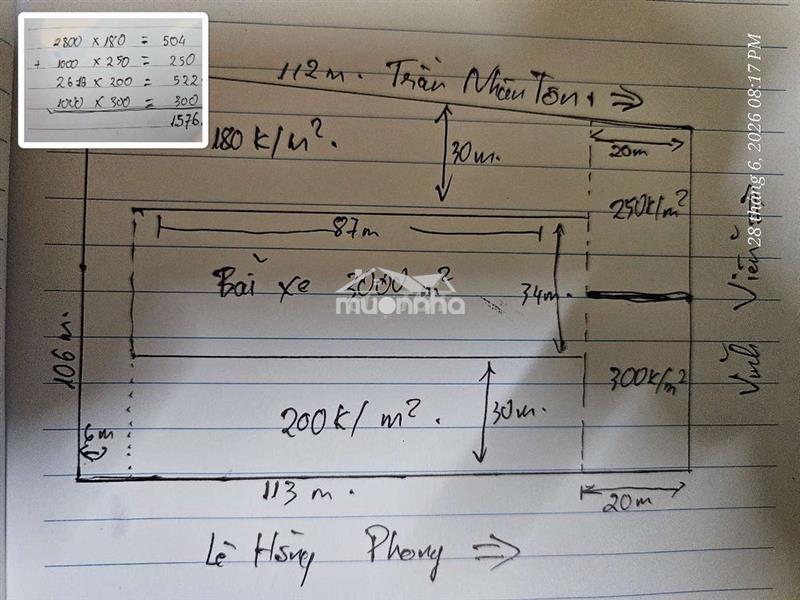 2800 x 180 = 504
+ 1000 x 250 = 250
2610 x 200 = 522
1000 x 300 = 300
1576.
112 m. Trần Nhân Tôn, ⇒
180 K/m².
30 m.
20m
250K/m²
87m
Bãi xe 3000 m²
34m.
muonnha
106 m.
300K/m²
Vĩnh Viễn
28 tháng 6, 2026 08:17 PM
6m
200K/m².
30m.
113 m.
20m
Lê Hồng Phong ⇒